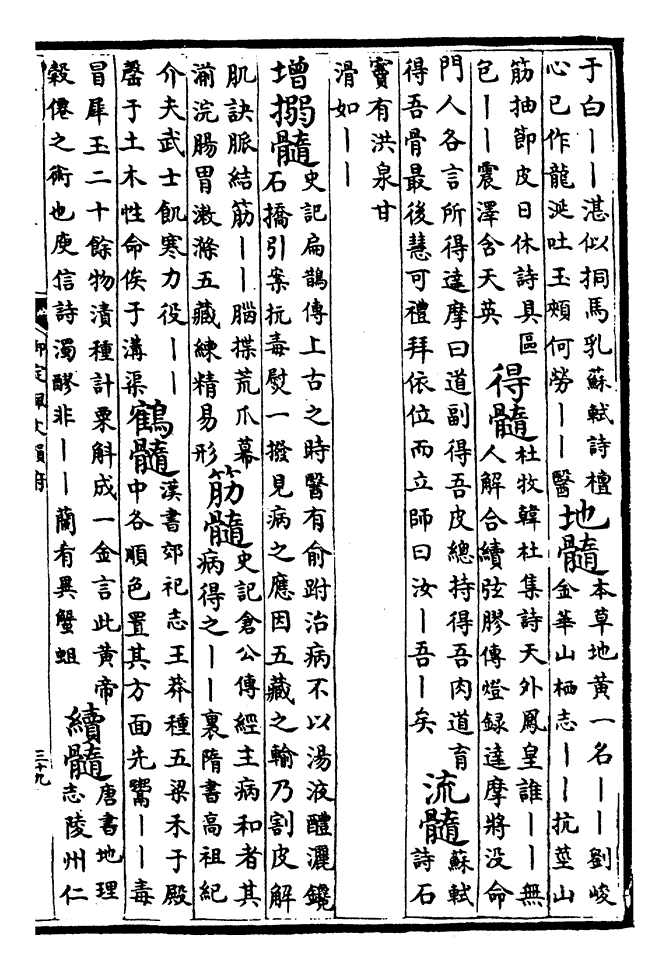 于白丨丨湛似挏馬乳蘇軾詩檀
心已作龍涎吐玉頰何勞丨丨醫
地髓
本草地黃一名丨丨劉峻
金華山栖志丨丨抗莖山
筋抽節皮日休詩具區
包丨丨震澤含天英
得髓
杜牧韓杜集詩天外鳳皇誰丨丨無
人解合續弦膠傳燈錄達摩將没命
門人各言所得達摩曰道副得吾皮總持得吾肉道育
得吾骨最後慧可禮拜依位而立師曰汝丨吾丨矣
流髓
蘇軾
詩石
竇有洪泉甘
滑如丨丨
增搦髓
史記扁鵲傳上古之時醫有俞跗治病不以湯液醴灑鑱
石撟引案抗毒熨一撥見病之應因五藏之輸乃割皮解
肌訣脈結筋丨丨腦揲荒爪幕
湔浣腸胃漱滌五藏練精易形
筋髓
史記倉公傳經主病和者其
病得之丨丨裏隋書高祖紀
介夫武士飢寒力役丨丨
罄于土木性命俟于溝渠
鶴髓
漢書郊祀志王莽種五梁禾于殿
中各順色置其方面先鬻丨丨毒
冒犀玉二十餘物漬種計粟斛成一金言此黃帝
穀僊之術也庾信詩濁醪非丨丨蘭肴異蟹蛆
續髓
唐書地理
志陵州仁
御定佩文韻府
三十九